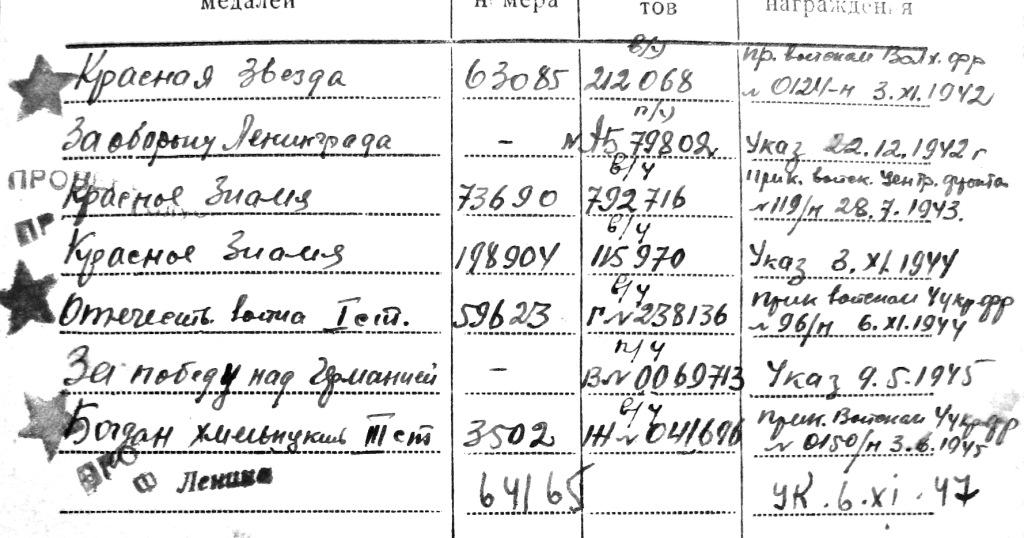 медалей номера тов награждения
в/ч Пр. войскам Волх. фр
Красная Звезда 63085 212068 № 0124-н 3.XI.1942
п/у
За оборону Ленинграда - № А579802 Указ 22.12.1942 г
в/ч Прик. войск. Центр. фронта
Красное Знамя 73690 792716 № 119/н 28.7.1943.
в/ч
Красное Знамя 198904 115970 Указ 3.XI.1944
в/ч Прик войскам 4 Укр фр
Отечеств. война I ст. 59623 Г № 238136 № 96/н 6.XI.1944
п/у
За победу над Германией - В № 0069713 Указ 9.5.1945
в/ч Прик. Войскам 4 Укр фр
Богдан Хмельницкий III ст 3502 Ж № 041696 № 0150/н 3.6.1945
Ленина 64165 УК. 6.XI.47